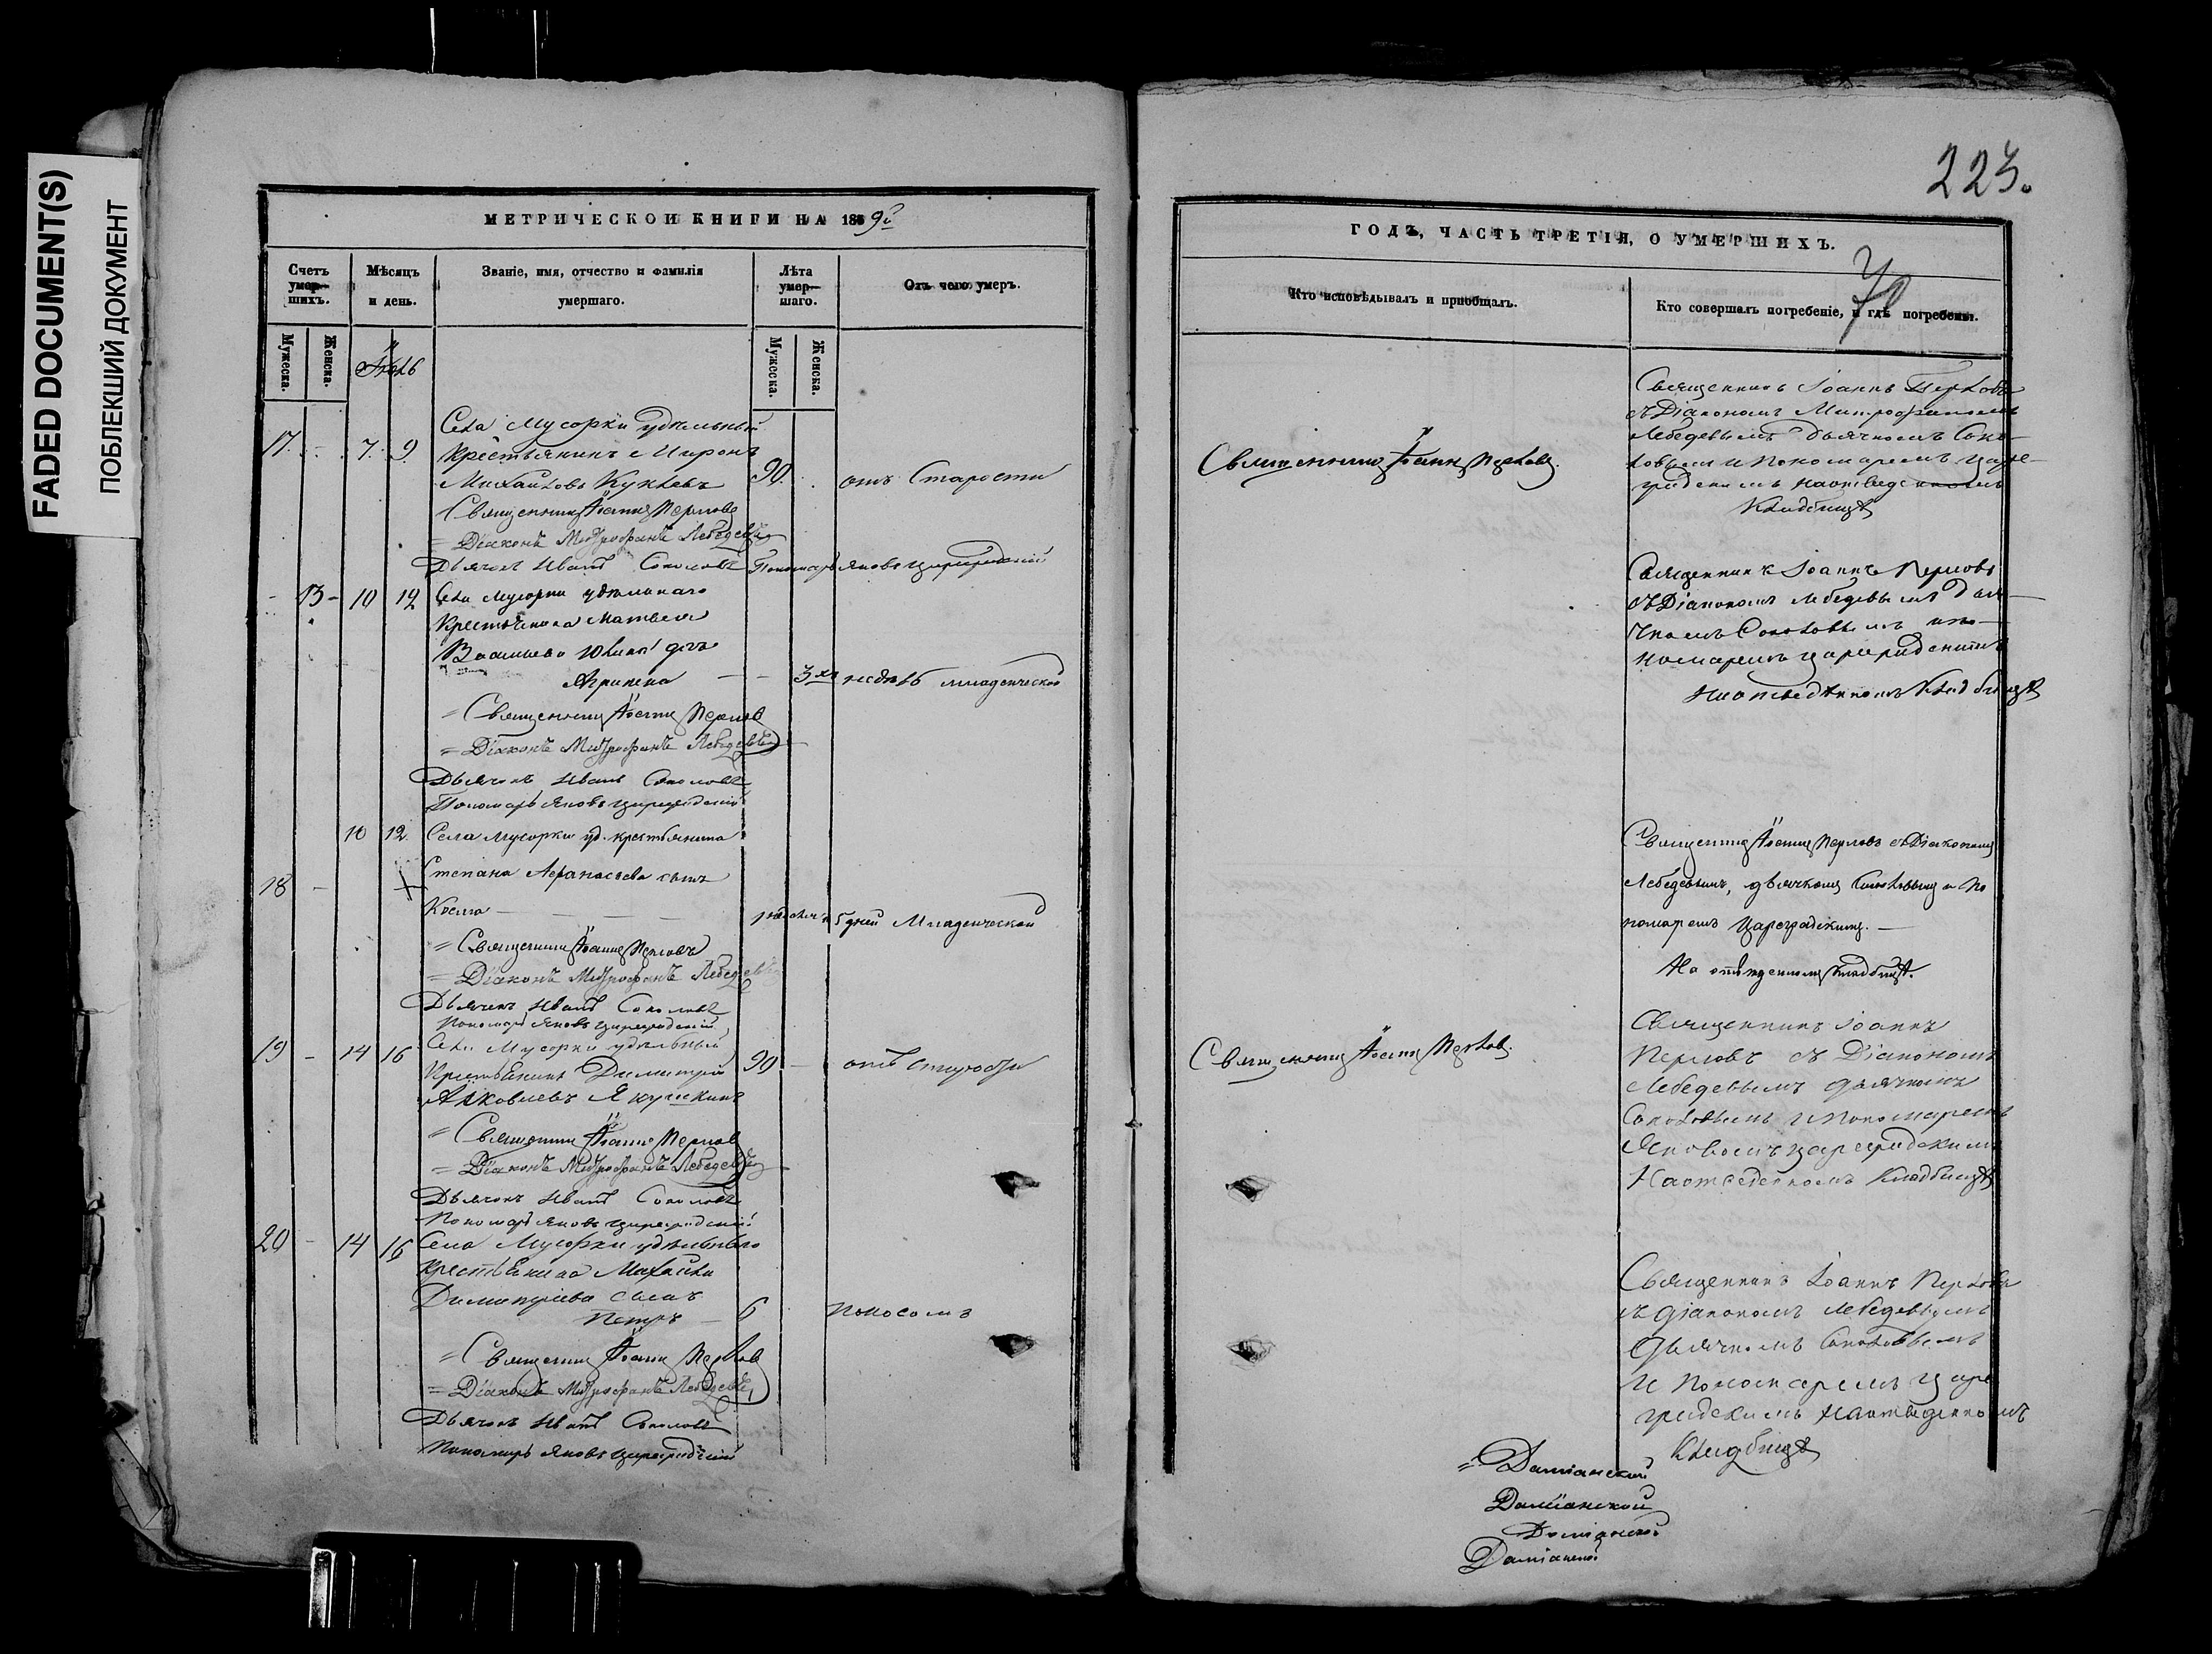 FADED DOCUMENT(S)
ПОБЛЕКШИЙ ДОКУМЕНТ
МЕТРИЧЕСКОЙ КНИГИ НА 1859й
Счетъ умер-шихъ.
Мѣсяцъ и день.
Званіе, имя, отчество и фамилія умершаго.
Лѣта умер-шаго.
Отъ чего умеръ.
Мужеска.
Женска.
Мужеска.
Женска.
17. - 7. 9.
Села Мусорки удѣльный
Крестьянинъ Миронъ
Михайловъ 90. отъ Старости
Священникъ Іоаннъ Перловъ
= Діаконъ Митрофанъ Лебедевъ
Дьячекъ Иванъ Соколовъ Пономарь Яковъ Цареградскій
- 13 - 10 12
Села Мусорки удѣльнаго
Крестьянина Матвея
Васильева дочь
Агрипена - - 3хъ недѣль младенческой
= Священникъ Іоаннъ Перловъ
= Діаконъ Митрофанъ Лебедевъ
Дьячекъ Иванъ Соколовъ
Пономарь Яковъ Цареградскій
10 12. Села Мусорки уд. крестьянина
18 - Степана Афанасьева сынъ
Косма 5 дней Младенческой
= Священникъ Іоаннъ Перловъ
= Діаконъ Митрофанъ Лебедевъ
Дьячекъ Иванъ Соколовъ
Пономарь Яковъ Цареградскій
19 - 14 16 Села Мусорки удѣльный
Крестьянинъ Димитрій 90 - отъ старости
Яковлевъ Якушкинъ
= Священникъ Іоаннъ Перловъ
= Діаконъ Митрофанъ Лебедевъ
Дьячекъ Иванъ Соколовъ
Пономарь Яковъ Цареградскій
20 - 14 16 Села Мусорки удѣльнаго
Крестьянина Михайла
Димитріева сынъ
Петръ - 6 поносомъ
= Священникъ Іоаннъ Перловъ
= Діаконъ Митрофанъ Лебедевъ
Дьячекъ Иванъ Соколовъ
Пономарь Яковъ Цареградскій
223.
ГОДЪ, ЧАСТЬ ТРЕТІЯ, О УМЕРШИХЪ.
Кто исповѣдывалъ и пріобщалъ.
Кто совершалъ погребеніе, и гдѣ погребены.
Священникъ Іоаннъ Перловъ.
Священникъ Іоаннъ Перловъ
съ Діакономъ Митрофаномъ
Лебедевымъ дьячкомъ Соко-
ловымъ и Пономаремъ Царе-
градскимъ на отведенномъ
Кладбищѣ
Священникъ Іоаннъ Перловъ
съ Діакономъ Лебедевымъ дья-
чкомъ Соколовымъ и по-
номаремъ Цареградскимъ
На отведенномъ Кладбищѣ
Священникъ Іоаннъ Перловъ съ Діакономъ
Лебедевымъ, дьячкомъ Соколовымъ и по
номаремъ Цареградскимъ. -
На отведенномъ кладбищѣ.
Священникъ Іоаннъ Перловъ.
Священникъ Іоаннъ
Перловъ съ Діакономъ
Лебедевымъ дьячкомъ
Соколовымъ и Пономаремъ
Яковомъ Цареградскимъ
На отведенномъ Кладбищѣ
Священникъ Іоаннъ Перловъ
съ діакономъ Лебедевымъ
дьячкомъ Соколовымъ
и Пономаремъ Царе
градскимъ на отведенномъ
Кладбищѣ
= Даміанской
Даміанской
Даміанской
Даміанской